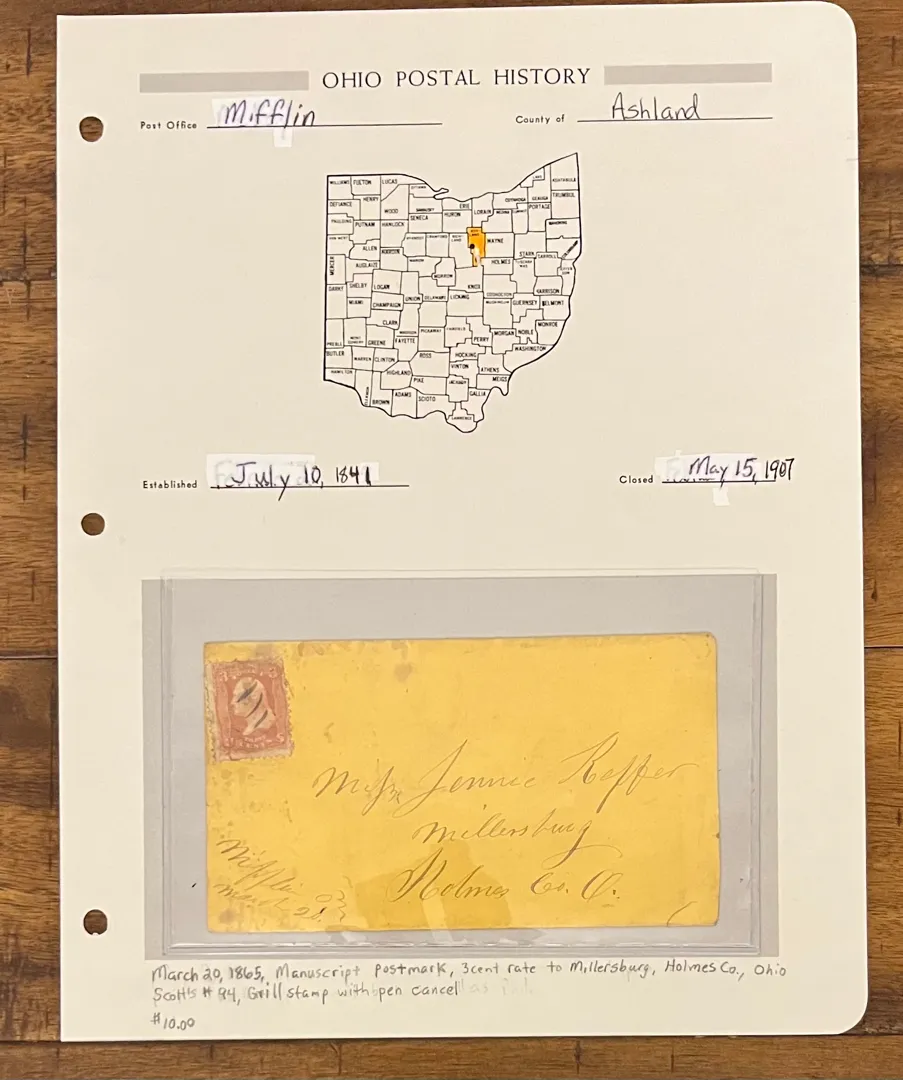 OHIO POSTAL HISTORY
Post Office Mifflin County of Ashland
WILLIAMS FULTON LUCAS
DEFIANCE HENRY WOOD ERIE LORAIN GEAUGA TRUMBULL
PAULDING PUTNAM HANCOCK SENECA HURON PORTAGE
ALLEN WAYNE STARK CARROLL
MERCER AUGLAIZE HARDIN MARION HOLMES
DARKE SHELBY LOGAN MORROW KNOX HARRISON
MIAMI CHAMPAIGN UNION DELAWARE LICKING COSHOCTON GUERNSEY BELMONT
CLARK MONROE
PREBLE GREENE FAYETTE PICKAWAY PERRY MORGAN NOBLE
BUTLER WARREN CLINTON ROSS HOCKING WASHINGTON
HAMILTON HIGHLAND VINTON ATHENS
PIKE JACKSON MEIGS
BROWN ADAMS SCIOTO GALLIA
LAWRENCE
Established July 10, 1841 Closed May 15, 1907
3 3
CENTS
Miss Jennie Keffer
Millersburg
Holmes Co. O.
Mifflin
March 20.
March 20, 1865, Manuscript postmark, 3cent rate to Millersburg, Holmes Co., Ohio
Scott's # 94, Grill stamp with pen cancel
$10.00